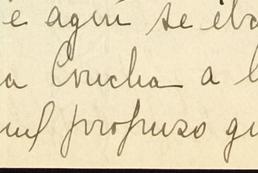 e aquí se iba
a Concha a l
propuso qu